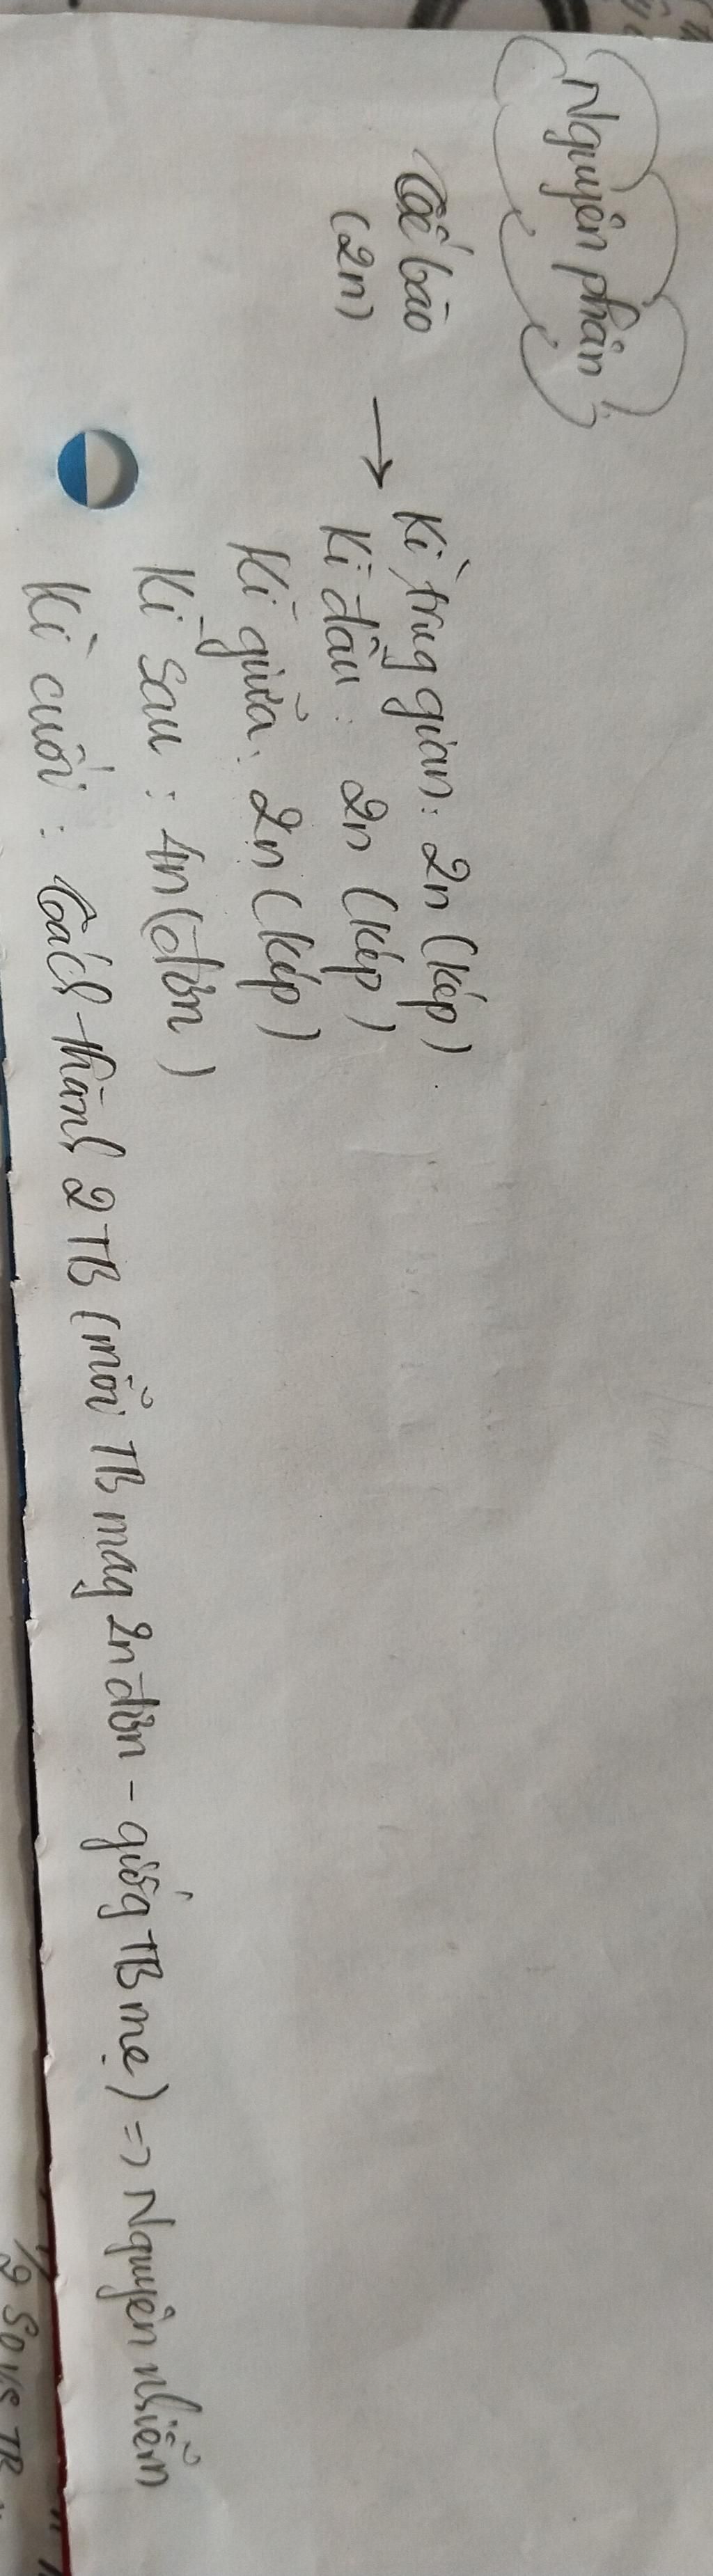 Nguyên phân
Tế bào
(2n)
→
Kì trug gian: 2n (kép)
Kì đầu: 2n (kép)
Kì giữa: 2n (kép)
Kì sau: 4n (đơn)
Kì cuối: Tách thành 2 TB (mỗi TB mag 2n đơn - giốg TB mẹ) => Nguyên nhiễm